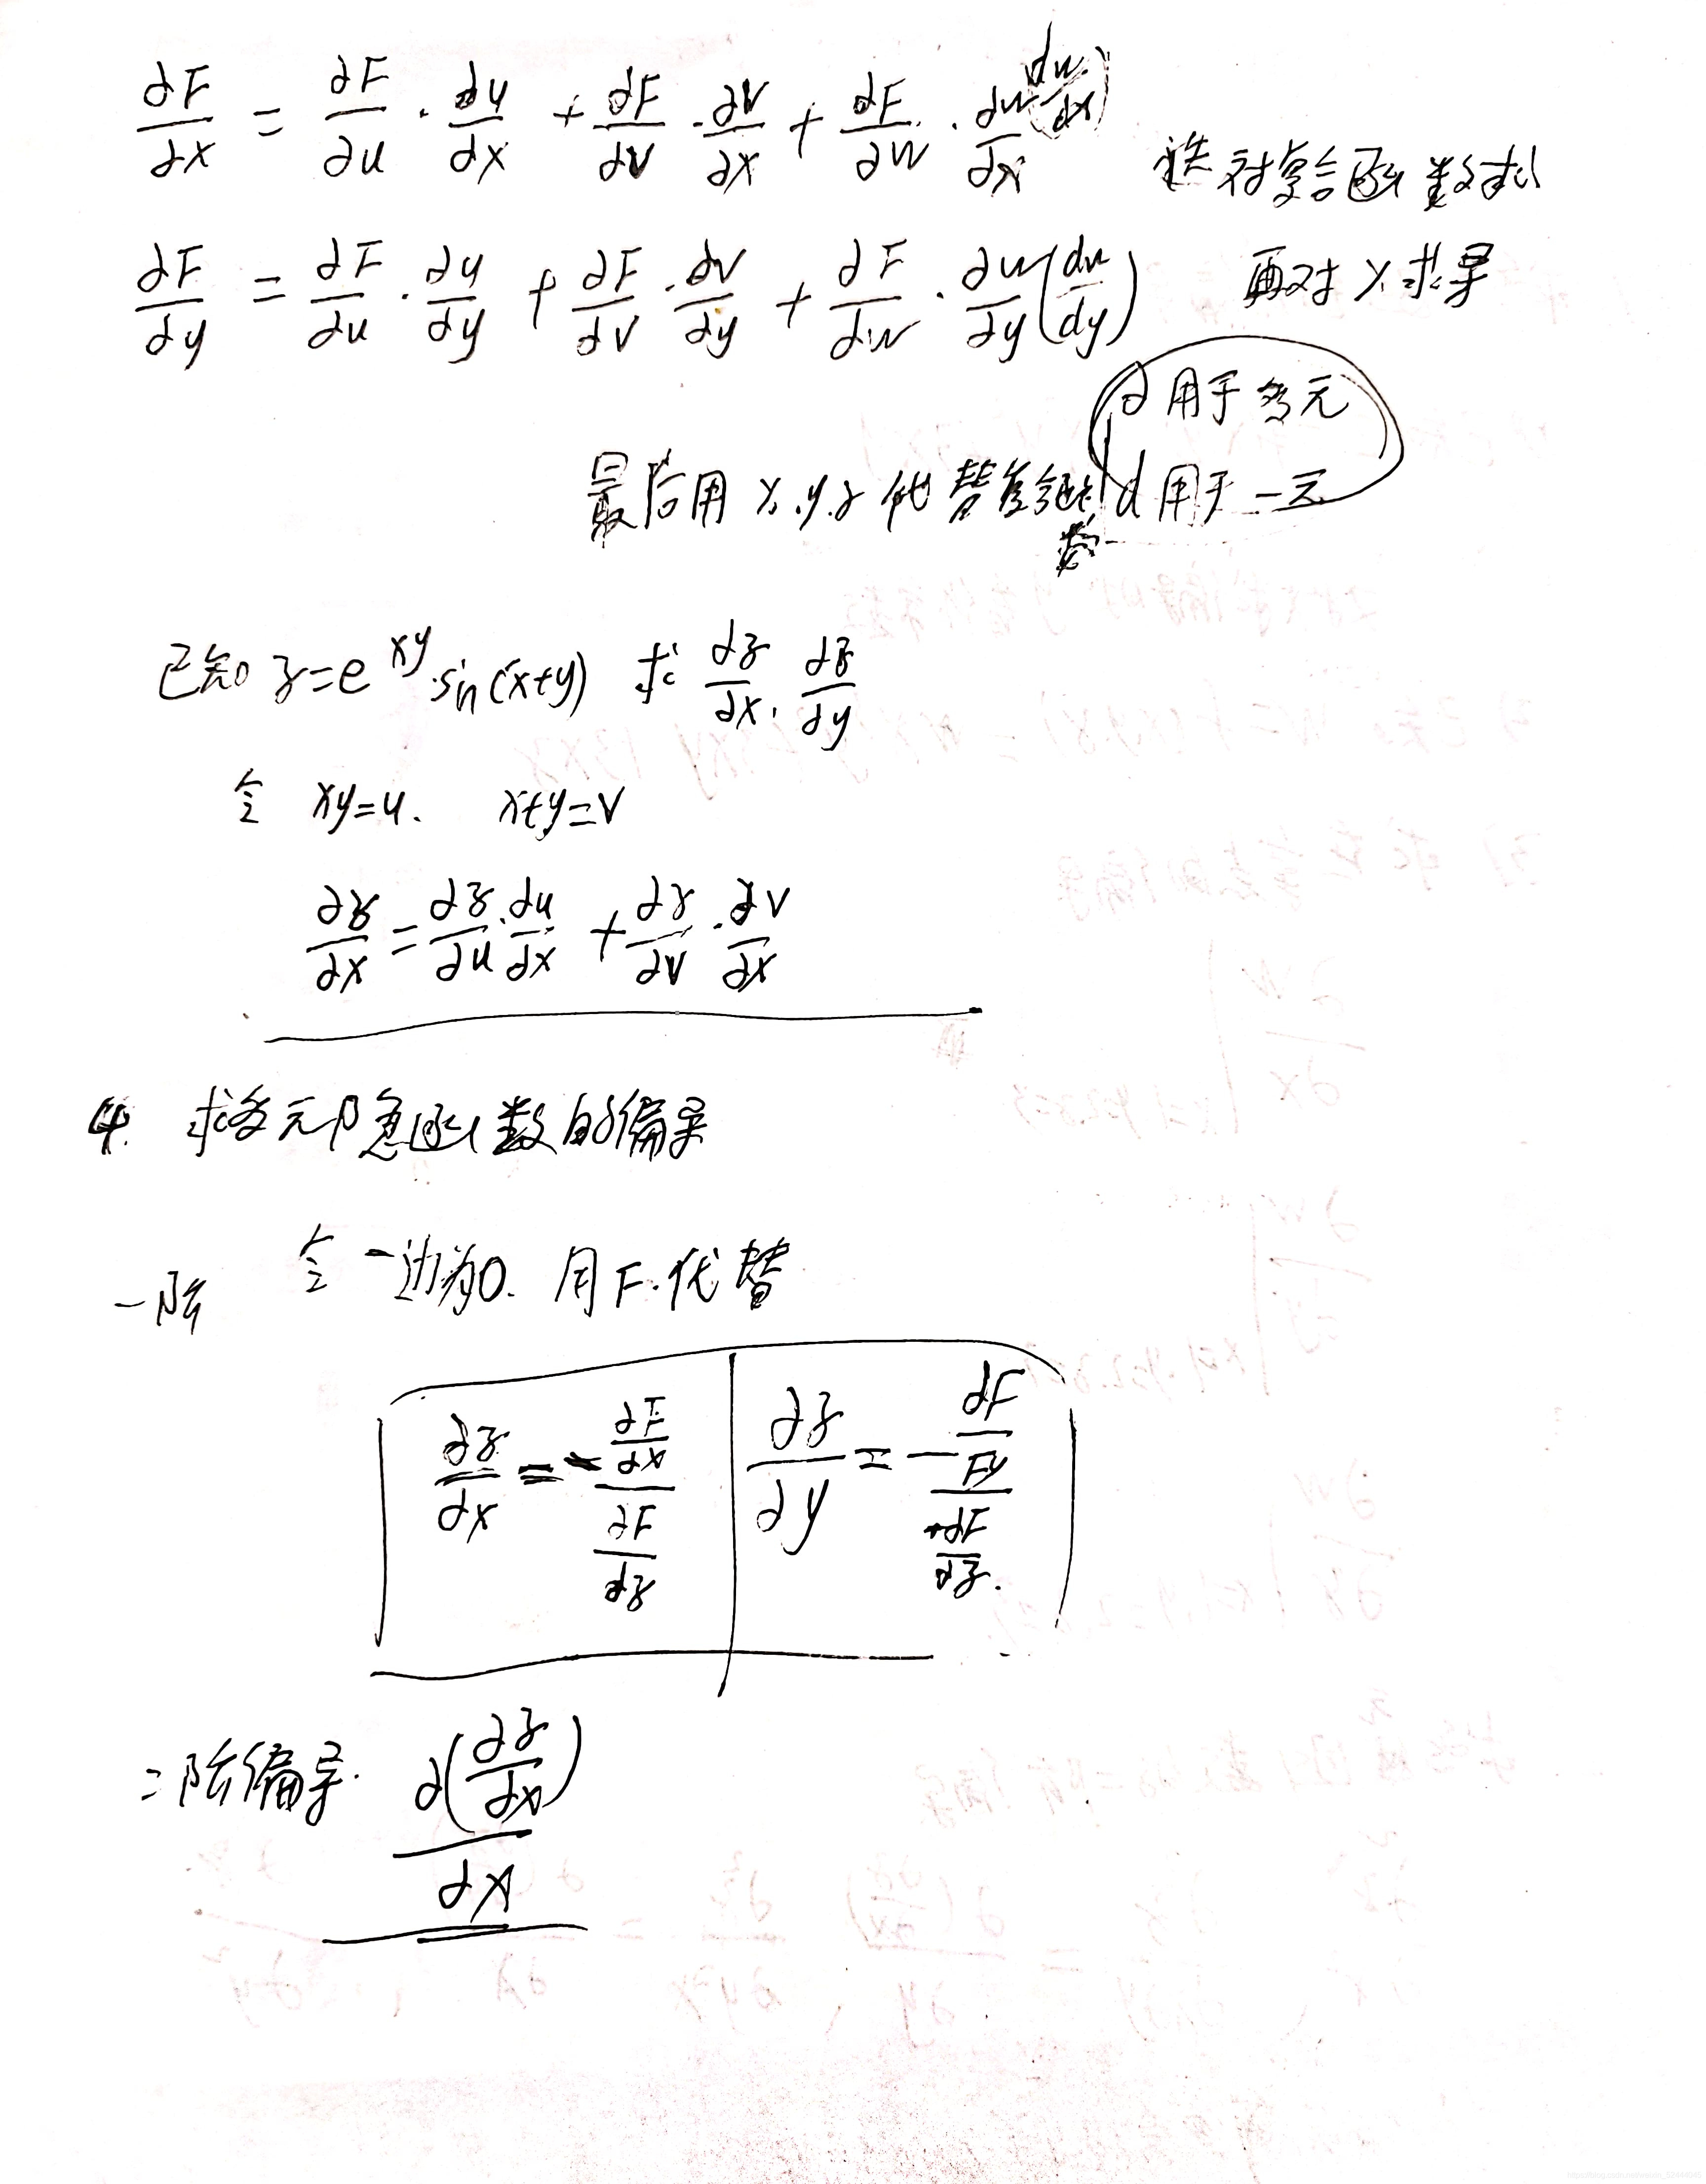 ∂F/∂x = ∂F/∂u · ∂u/∂x + ∂F/∂v · ∂v/∂x + ∂F/∂w · ∂w/∂x (dw/dx) 先对复合函数求
∂F/∂y = ∂F/∂u · ∂u/∂y + ∂F/∂v · ∂v/∂y + ∂F/∂w · ∂w/∂y (dw/dy) 再对x求导
∂用于多元
最后用x.y.z代替复合函数 d用于一元
已知 z=e^{xy}·sin(x+y) 求 ∂z/∂x, ∂z/∂y
令 xy=u. x+y=v
∂z/∂x = ∂z/∂u · ∂u/∂x + ∂z/∂v · ∂v/∂x
4. 求多元隐函数的偏导
一阶 令一边为0. 用F.代替
∂z/∂x = - (∂F/∂x)/(∂F/∂z) | ∂z/∂y = - (∂F/Fy)/(∂F/∂z).
二阶偏导. ∂(∂z/∂x)/∂x